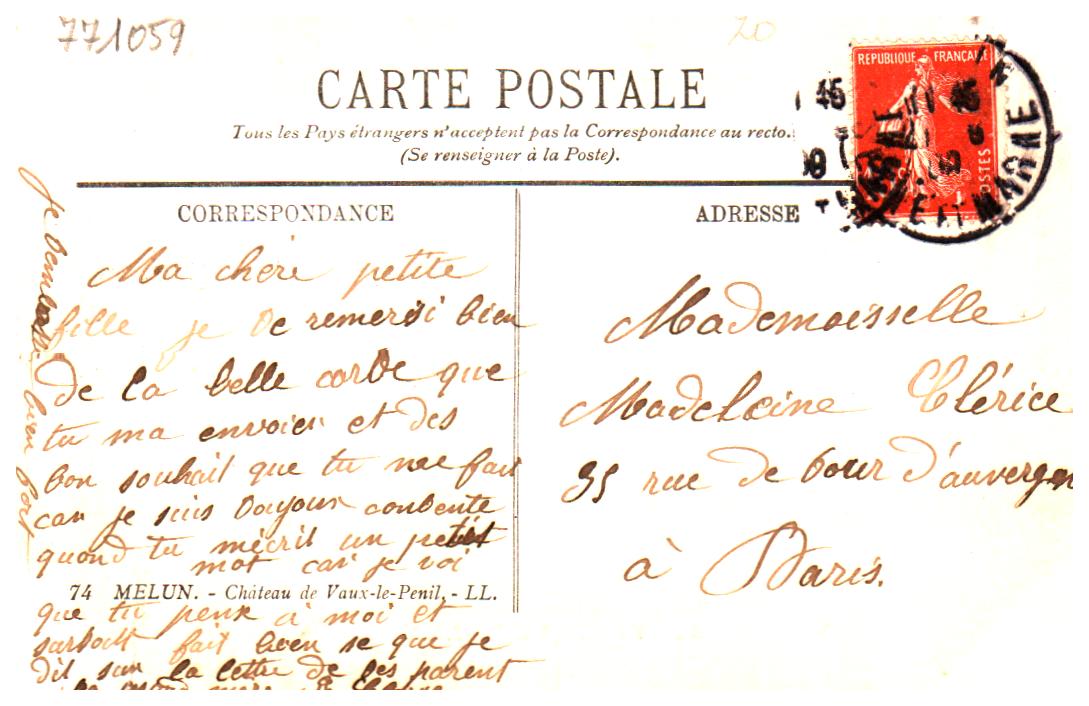 771059
20
CARTE POSTALE
Tous les Pays étrangers n'acceptent pas la Correspondance au recto.
(Se renseigner à la Poste).
REPUBLIQUE FRANÇAISE
POSTES
45
MARNE
CORRESPONDANCE
ADRESSE
Ma chère petite
fille je te remersi bien
de la belle carte que
tu ma envoier et des
bon souhait que tu me fait
car je suis toujour contente
quand tu mécrit un petit
mot car je voi
74 MELUN. - Château de Vaux-le-Penil. - LL.
que tu pense à moi et
surtout fait bien se que je
dit sur la lettre de tes parent
je t'embrasse bien fort
Mademoisselle
Madeleine Clérice
35 rue de tour d'auvergn
à Paris.